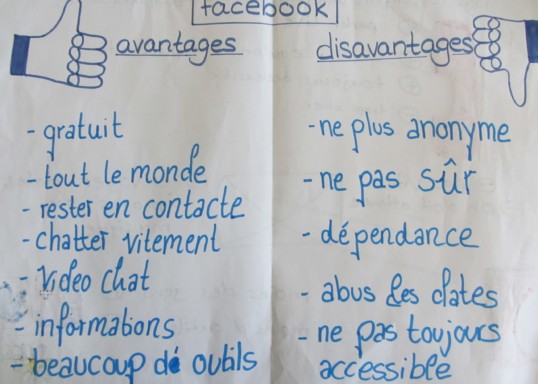 facebook
avantages
- gratuit
- tout le monde
- rester en contacte
- chatter vitement
- video chat
- informations
- beaucoup de outils
disavantages
- ne plus anonyme
- ne pas sûr
- dépendance
- abus des dates
- ne pas toujours
accessible